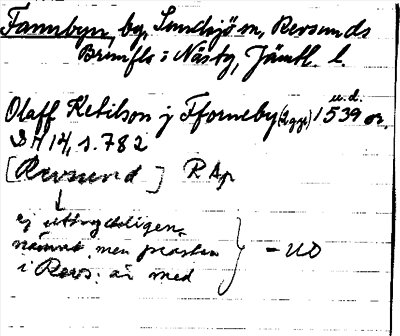 Fannbyn, by, Sundsjö sn, Revsunds
Brunflo o Näs tg, Jämtl. l.
u.d.
Olaff Ketilson j Fforneby (2 ggr) 1539 or.
D 14, s. 782
[Revsund] RAp
ej uttryckligen
nämnt, men prästen
i Revs. är med
- UO